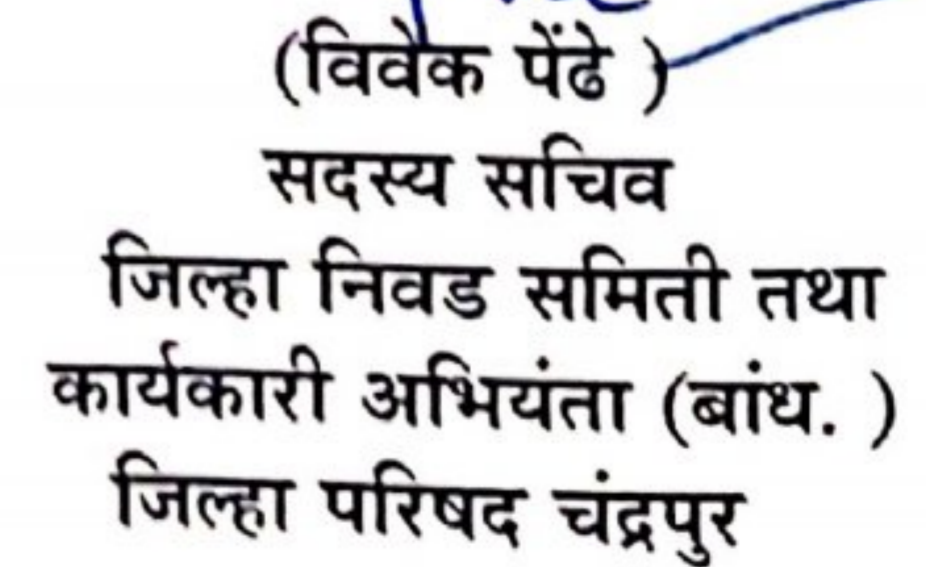 (विवेक पेंढे )
सदस्य सचिव
जिल्हा निवड समिती तथा
कार्यकारी अभियंता (बांध. )
जिल्हा परिषद चंद्रपुर